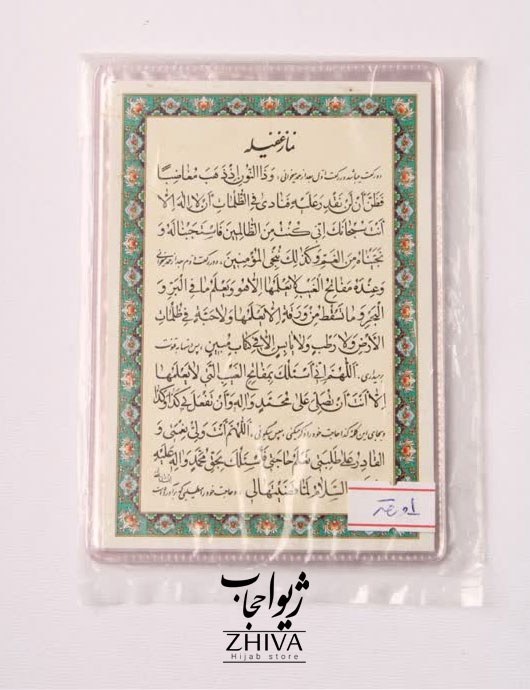 نماز غفیله
دو رکعت میباشد در رکعت اول بعد از حمد میخوانی، وَذَا النُّونِ إِذْ ذَهَبَ مُغَاضِبًا
فَظَنَّ أَنْ لَنْ نَقْدِرَ عَلَيْهِ فَنَادَىٰ فِي الظُّلُمَاتِ أَنْ لَا إِلَٰهَ إِلَّا
أَنْتَ سُبْحَانَكَ إِنِّي كُنْتُ مِنَ الظَّالِمِينَ فَاسْتَجَبْنَا لَهُ وَ
نَجَّيْنَاهُ مِنَ الْغَمِّ وَكَذَٰلِكَ نُنْجِي الْمُؤْمِنِينَ، در رکعت دوم بعد از حمد میخوانی
وَعِنْدَهُ مَفَاتِحُ الْغَيْبِ لَا يَعْلَمُهَا إِلَّا هُوَ وَيَعْلَمُ مَا فِي الْبَرِّ وَ
الْبَحْرِ وَمَا تَسْقُطُ مِنْ وَرَقَةٍ إِلَّا يَعْلَمُهَا وَلَا حَبَّةٍ فِي ظُلُمَاتِ
الْأَرْضِ وَلَا رَطْبٍ وَلَا يَابِسٍ إِلَّا فِي كِتَابٍ مُبِينٍ، پس دستها به قنوت
برمیداری، اَللّٰهُمَّ إِنِّي أَسْأَلُكَ بِمَفَاتِحِ الْغَيْبِ الَّتِي لَا يَعْلَمُهَا
إِلَّا أَنْتَ أَنْ تُصَلِّيَ عَلَىٰ مُحَمَّدٍ وَآلِهِ وَأَنْ تَفْعَلَ بِي كَذَا وَكَذَا
و بجای این کلمه کذا حاجت خود را ذکر میکنی، پس میگوئی، اَللّٰهُمَّ أَنْتَ وَلِيُّ نِعْمَتِي وَ
الْقَادِرُ عَلَىٰ طَلِبَتِي تَعْلَمُ حَاجَتِي فَأَسْأَلُكَ بِحَقِّ مُحَمَّدٍ وَآلِهِ عَلَيْهِ
السَّلَامُ لَمَّا قَضَيْتَهَا لِي
ژیوا حجاب
ZHIVA
Hijab store